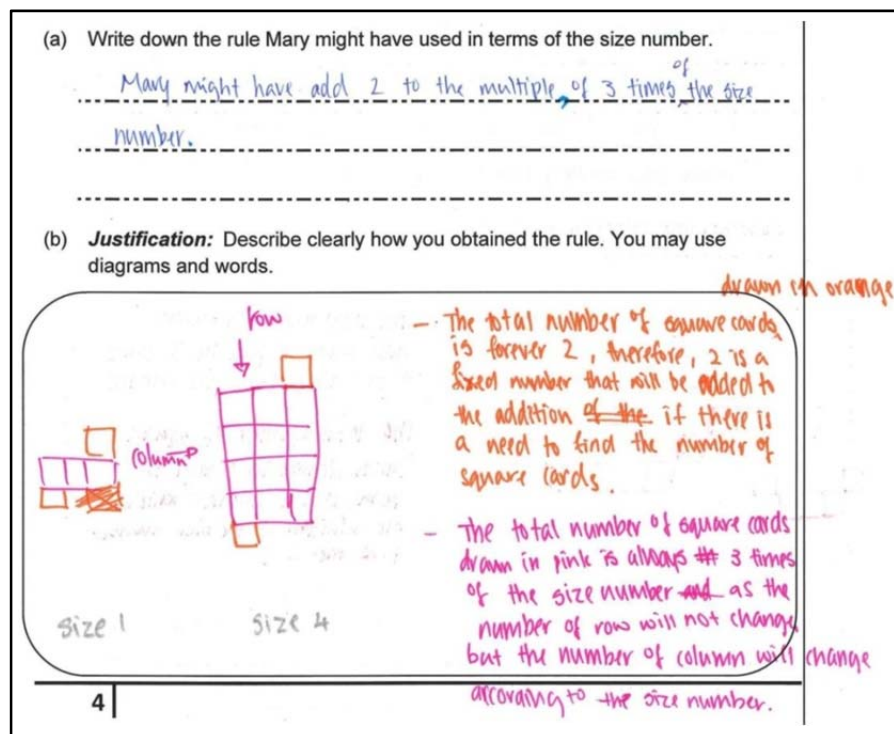 (a) Write down the rule Mary might have used in terms of the size number.
Mary might have add 2 to the multiple, of 3 times of the size
number.
(b) Justification: Describe clearly how you obtained the rule. You may use
diagrams and words.
row
column
size 1
size 4
drawn in orange
- The total number of square cards
is forever 2, therefore, 2 is a
fixed number that will be added to
the addition of the if there is
a need to find the number of
square cards.
- The total number of square cards
drawn in pink is always 3 times
of the size number and as the
number of row will not change
but the number of column will change
according to the size number.
4